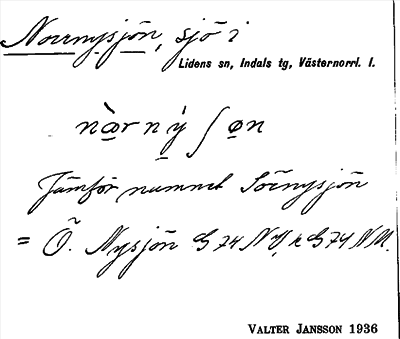 Norrnysjön, sjö i
Lidens sn, Indals tg, Västernorrl. l.
nòrnýʃøn
Jämför namnet Sörnysjön
= Ö. Nysjön G 74 NV, k G 74 NU.
VALTER JANSSON 1936